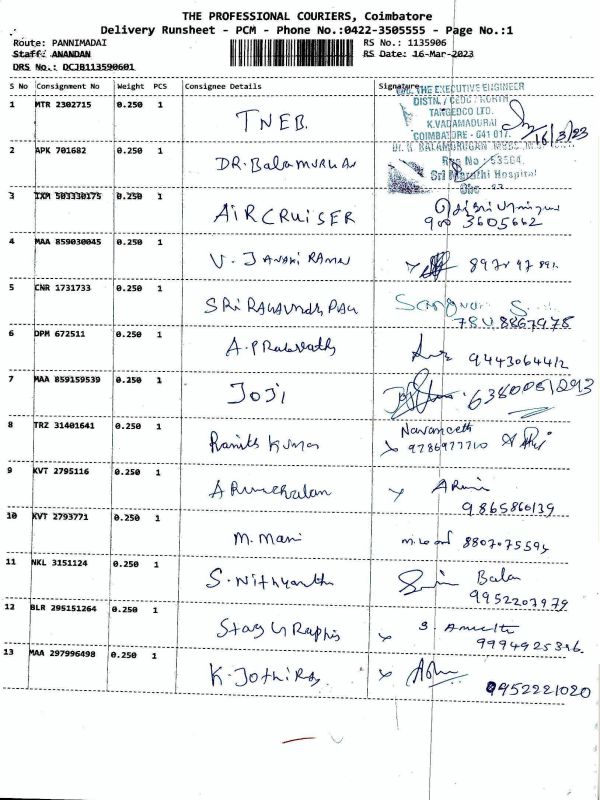 THE PROFESSIONAL COURIERS, Coimbatore
Delivery Runsheet - PCM - Phone No.:0422-3505555 - Page No.:1
Route: PANNIMADAI RS No.: 1135906
Staff: ANANDAN RS Date: 16-Mar-2023
DRS No.: DCJB113590601
S No Consignment No Weight PCS Consignee Details Signature
THE EXECUTIVE ENGINEER
DISTN. / CEDC / NORTH
TANGEDCO LTD.
K.VADAMADURAI
COIMBATORE - 641 017.
1 MTR 2302715 0.250 1 TNEB. 16/3/23
2 APK 701682 0.250 1 DR. Balamurugan
Reg No : 53504,
Sri Maruthi Hospital
3 IXM 503330175 0.250 1 AIRCRUISER
3605662
4 MAA 859030045 0.250 1 V. Janaki Raman
5 CNR 1731733 0.250 1
8867978
6 DPM 672511 0.250 1 9443064412
7 MAA 859159539 0.250 1 JOJI
8 TRZ 31401641 0.250 1 Navaneeth
9786977710
9 KVT 2795116 0.250 1 Arunchalam
9865860139
10 KVT 2793771 0.250 1 M. Mani 8807075594
11 NKL 3151124 0.250 1 S. Nithyanth Balan
9952207979
12 BLR 295151264 0.250 1
9994925396
13 MAA 297996498 0.250 1 K. Jothi Raj
9952221020